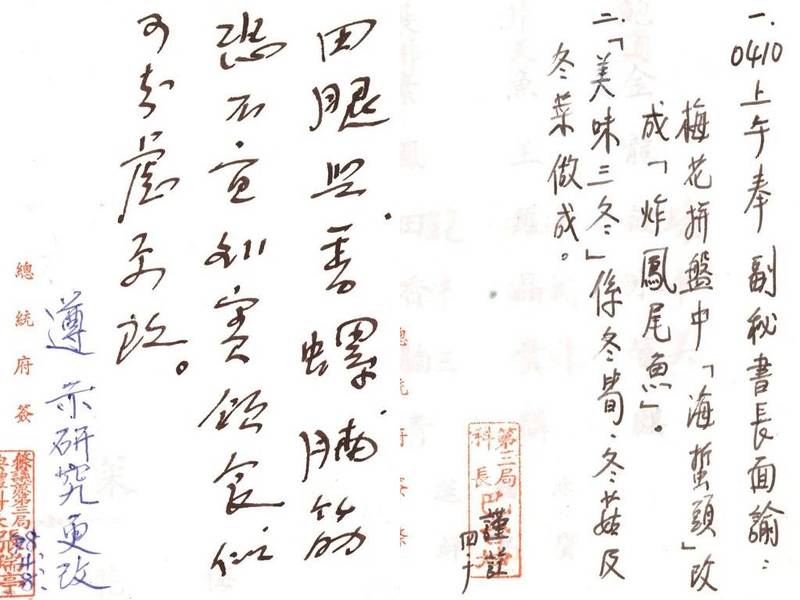 一、0410上午奉 副秘書長面諭：
梅花拼盤中「海蜇頭」改
成「炸鳳尾魚」。
二、「美味三冬」係冬筍、冬菇及
冬菜做成。
第三局
科長
謹註
四十
總統府簽
田腿與香螺脯筋
恐不宜 賓飲食似
可考慮更改。
遵示研究更改
總統府簽
第三局